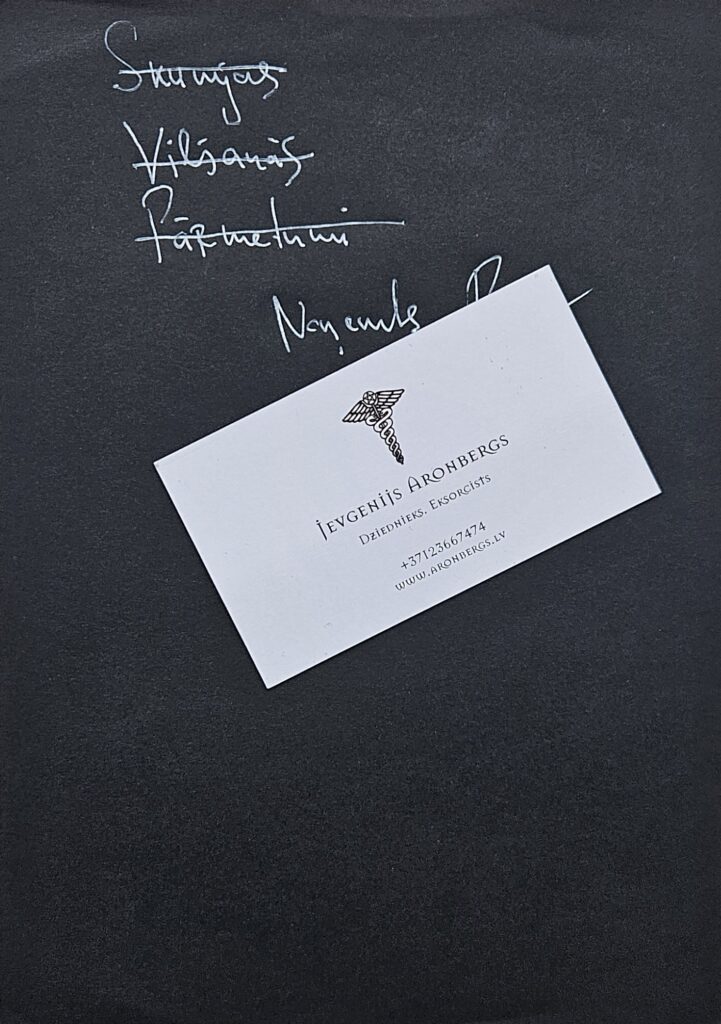 Skumjas
Vilšanās
Pārmetumi
Noņemts
Jevgenijs Aronbergs
Dziednieks, Eksorcists
+37123667474
www.aronbergs.lv